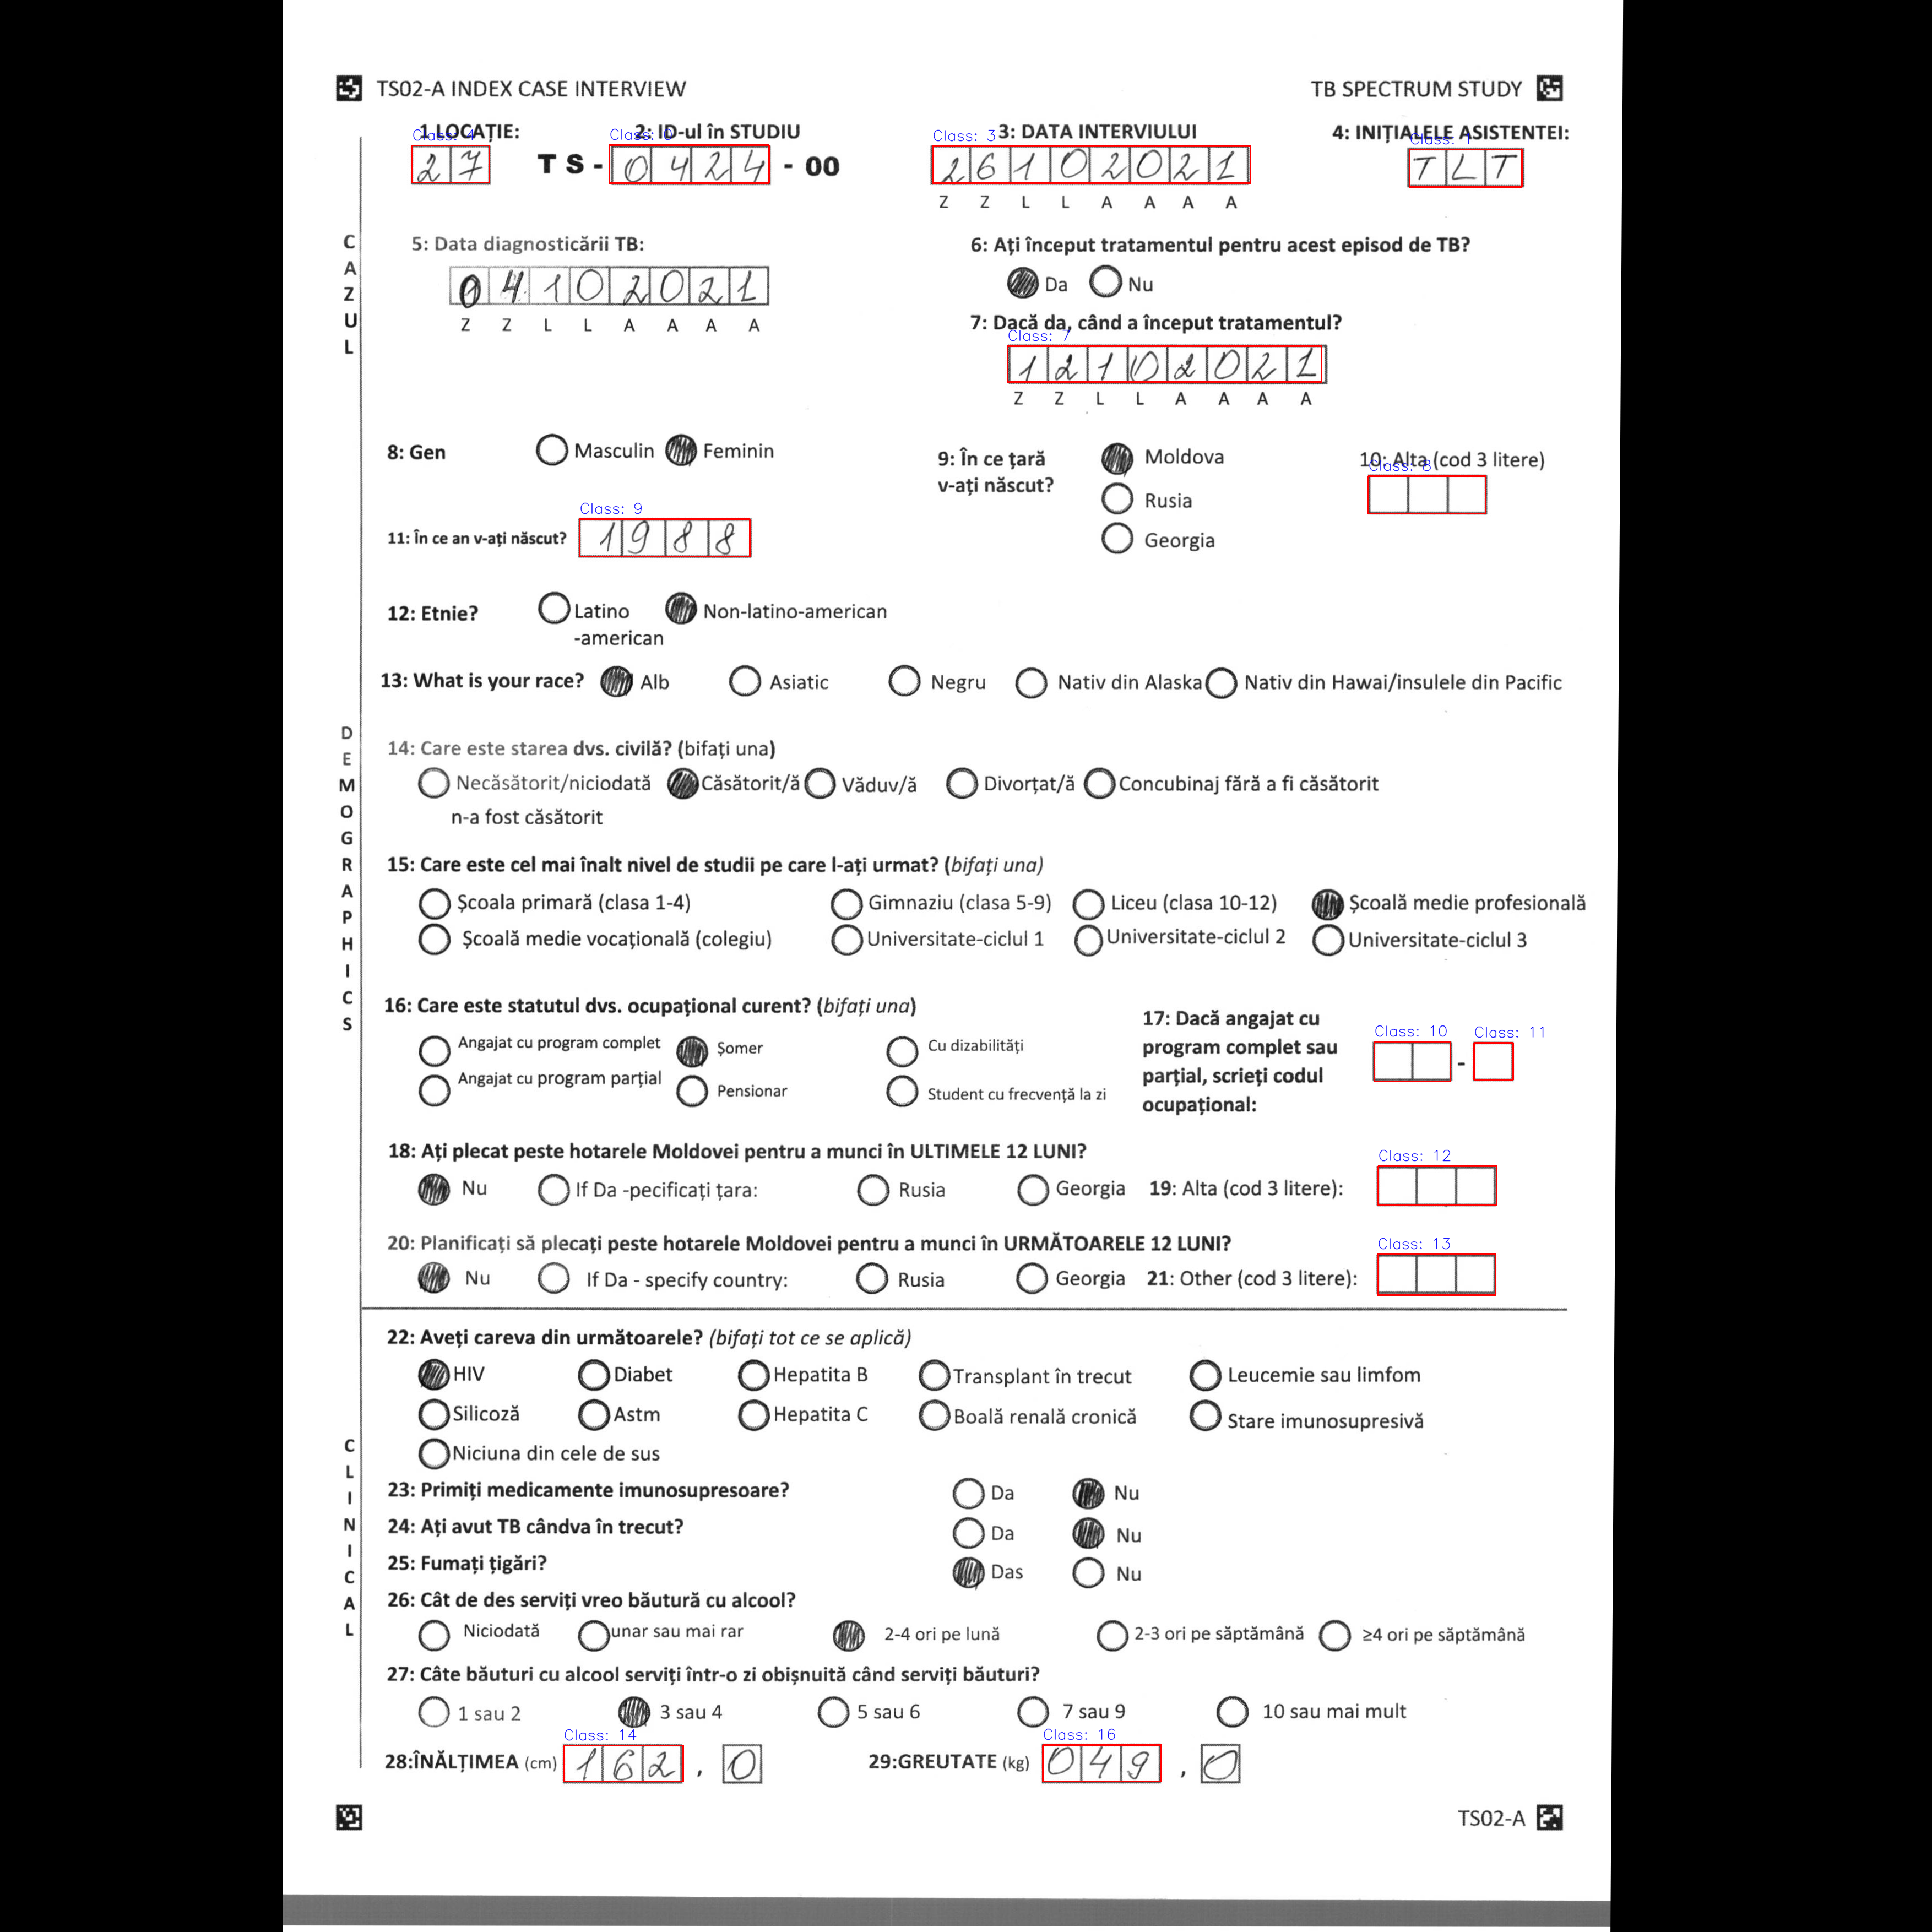 TS02-A INDEX CASE INTERVIEW TB SPECTRUM STUDY
1 LOCAȚIE: 2: ID-ul în STUDIU 3: DATA INTERVIULUI 4: INIȚIALELE ASISTENTEI:
Class: 4 Class: 0 Class: 3 Class: 1
27 TS- 0424 - 00 26102021 TLT
Z Z L L A A A A
CAZUL
5: Data diagnosticării TB: 6: Ați început tratamentul pentru acest episod de TB?
04102021 Da Nu
Z Z L L A A A A
7: Dacă da, când a început tratamentul?
Class: 7
12102021
Z Z L L A A A A
8: Gen Masculin Feminin
9: În ce țară v-ați născut? Moldova
Rusia
Georgia
10: Alta (cod 3 litere)
Class: 8
Class: 9
11: În ce an v-ați născut? 1988
12: Etnie? Latino -american Non-latino-american
13: What is your race? Alb Asiatic Negru Nativ din Alaska Nativ din Hawai/insulele din Pacific
DEMOGRAPHICS
14: Care este starea dvs. civilă? (bifați una)
Necăsătorit/niciodată Căsătorit/ă Văduv/ă Divorțat/ă Concubinaj fără a fi căsătorit
n-a fost căsătorit
15: Care este cel mai înalt nivel de studii pe care l-ați urmat? (bifați una)
Școala primară (clasa 1-4) Gimnaziu (clasa 5-9) Liceu (clasa 10-12) Școală medie profesională
Școală medie vocațională (colegiu) Universitate-ciclul 1 Universitate-ciclul 2 Universitate-ciclul 3
16: Care este statutul dvs. ocupațional curent? (bifați una)
Angajat cu program complet Șomer Cu dizabilități
Angajat cu program parțial Pensionar Student cu frecvență la zi
17: Dacă angajat cu
program complet sau
parțial, scrieți codul
ocupațional:
Class: 10 Class: 11
-
18: Ați plecat peste hotarele Moldovei pentru a munci în ULTIMELE 12 LUNI?
Class: 12
Nu If Da -pecificați țara: Rusia Georgia 19: Alta (cod 3 litere):
20: Planificați să plecați peste hotarele Moldovei pentru a munci în URMĂTOARELE 12 LUNI?
Class: 13
Nu If Da - specify country: Rusia Georgia 21: Other (cod 3 litere):
CLINICAL
22: Aveți careva din următoarele? (bifați tot ce se aplică)
HIV Diabet Hepatita B Transplant în trecut Leucemie sau limfom
Silicoză Astm Hepatita C Boală renală cronică Stare imunosupresivă
Niciuna din cele de sus
23: Primiți medicamente imunosupresoare? Da Nu
24: Ați avut TB cândva în trecut? Da Nu
25: Fumați țigări? Das Nu
26: Cât de des serviți vreo băutură cu alcool?
Niciodată unar sau mai rar 2-4 ori pe lună 2-3 ori pe săptămână ≥4 ori pe săptămână
27: Câte băuturi cu alcool serviți într-o zi obișnuită când serviți băuturi?
1 sau 2 3 sau 4 5 sau 6 7 sau 9 10 sau mai mult
Class: 14 Class: 16
28:ÎNĂLȚIMEA (cm) 162 , 0 29:GREUTATE (kg) 049 , 0
TS02-A